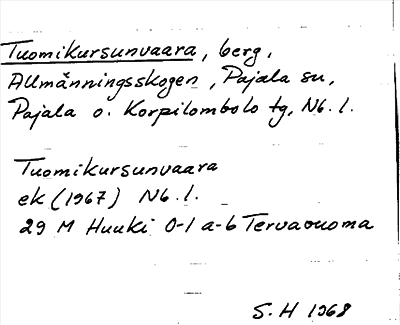 Tuomikursunvaara, berg,
Allmänningsskogen, Pajala sn,
Pajala o. Korpilombolo tg, Nb. l.
Tuomikursunvaara
ek (1967) Nb. l.
29 M Huuki 0-1 a-b Tervavuoma
S. H 1968